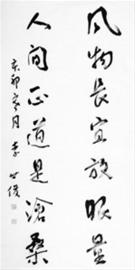 风物长宜放眼量
人间正道是沧桑
辛卯寒月李公俊